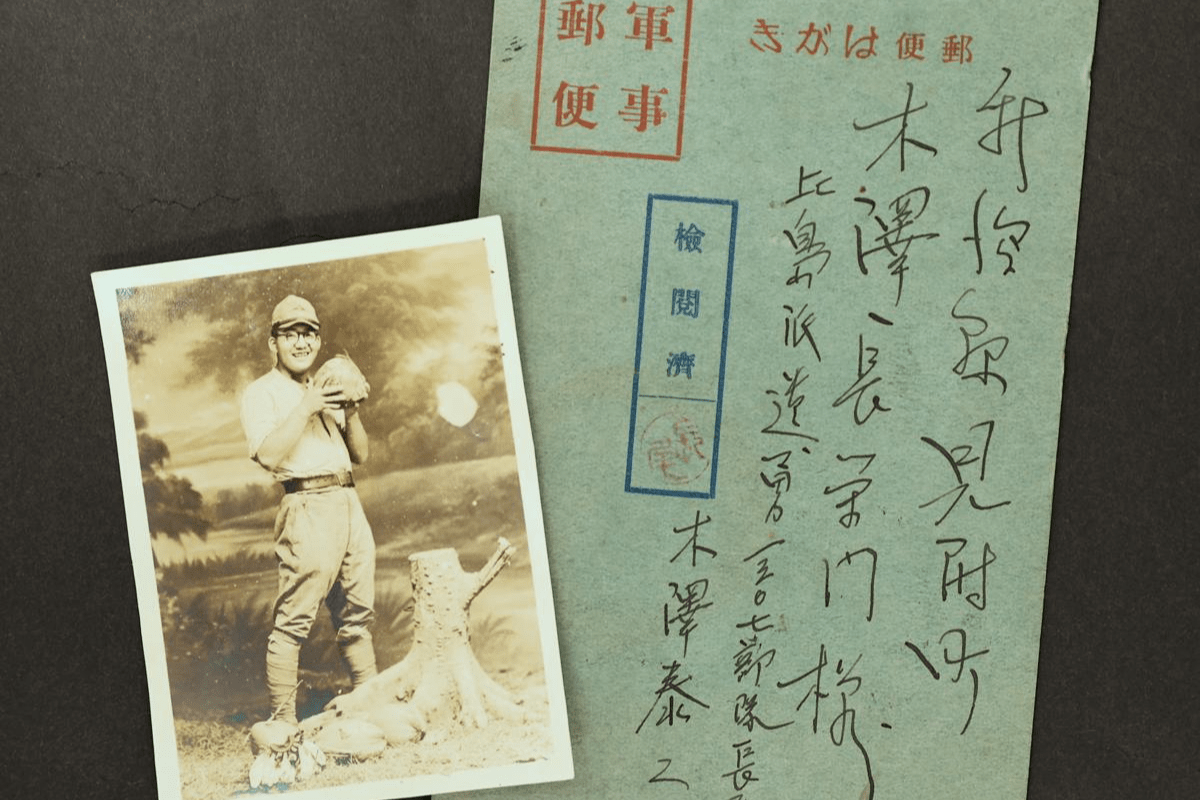 郵便はがき
軍事
郵便
新潟縣見附町
木澤長栄門様
比島派遣勇一三〇七部隊長
檢閲濟
木澤泰